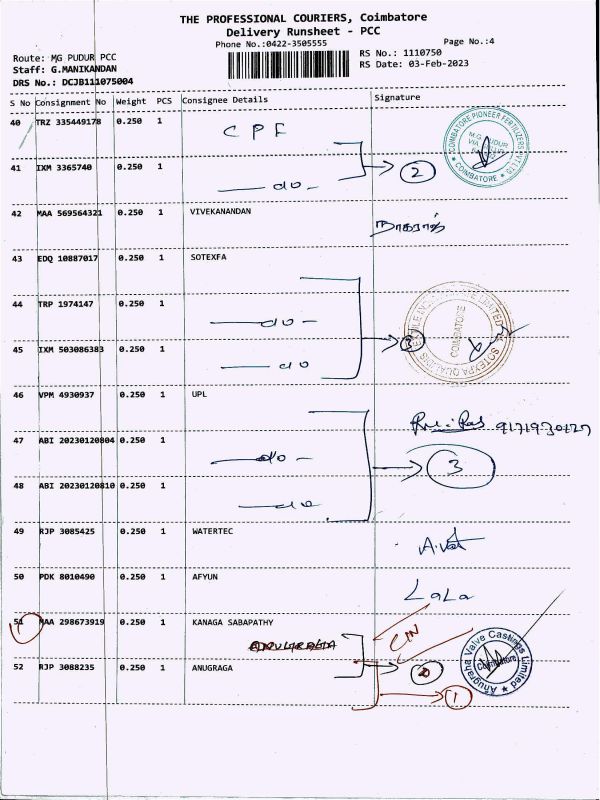 THE PROFESSIONAL COURIERS, Coimbatore
Delivery Runsheet - PCC
Phone No.:0422-3505555
Page No.:4
Route: MG PUDUR PCC
RS No.: 1110750
Staff: G.MANIKANDAN
RS Date: 03-Feb-2023
DRS No.: DCJB111075004
S No Consignment No Weight PCS Consignee Details Signature
40 TRZ 335449178 0.250 1 CPF
COIMBATORE PIONEER FERTILIZERS PVT LTD
M.G. PUDUR
COIMBATORE
41 IXM 3365740 0.250 1 do 2
42 MAA 569564321 0.250 1 VIVEKANANDAN நாகராஜ்
43 EDQ 10887017 0.250 1 SOTEXFA
44 TRP 1974147 0.250 1 do
COIMBATORE
45 IXM 503086383 0.250 1 do 3
46 VPM 4930937 0.250 1 UPL
47 ABI 20230120804 0.250 1 do
48 ABI 20230120810 0.250 1 do 3
49 RJP 3085425 0.250 1 WATERTEC
50 PDK 8010490 0.250 1 AFYUN LaLa
51 MAA 298673919 0.250 1 KANAGA SABAPATHY
52 RJP 3088235 0.250 1 ANUGRAGA
Anugraha Valve Castings Limited
Coimbatore
1